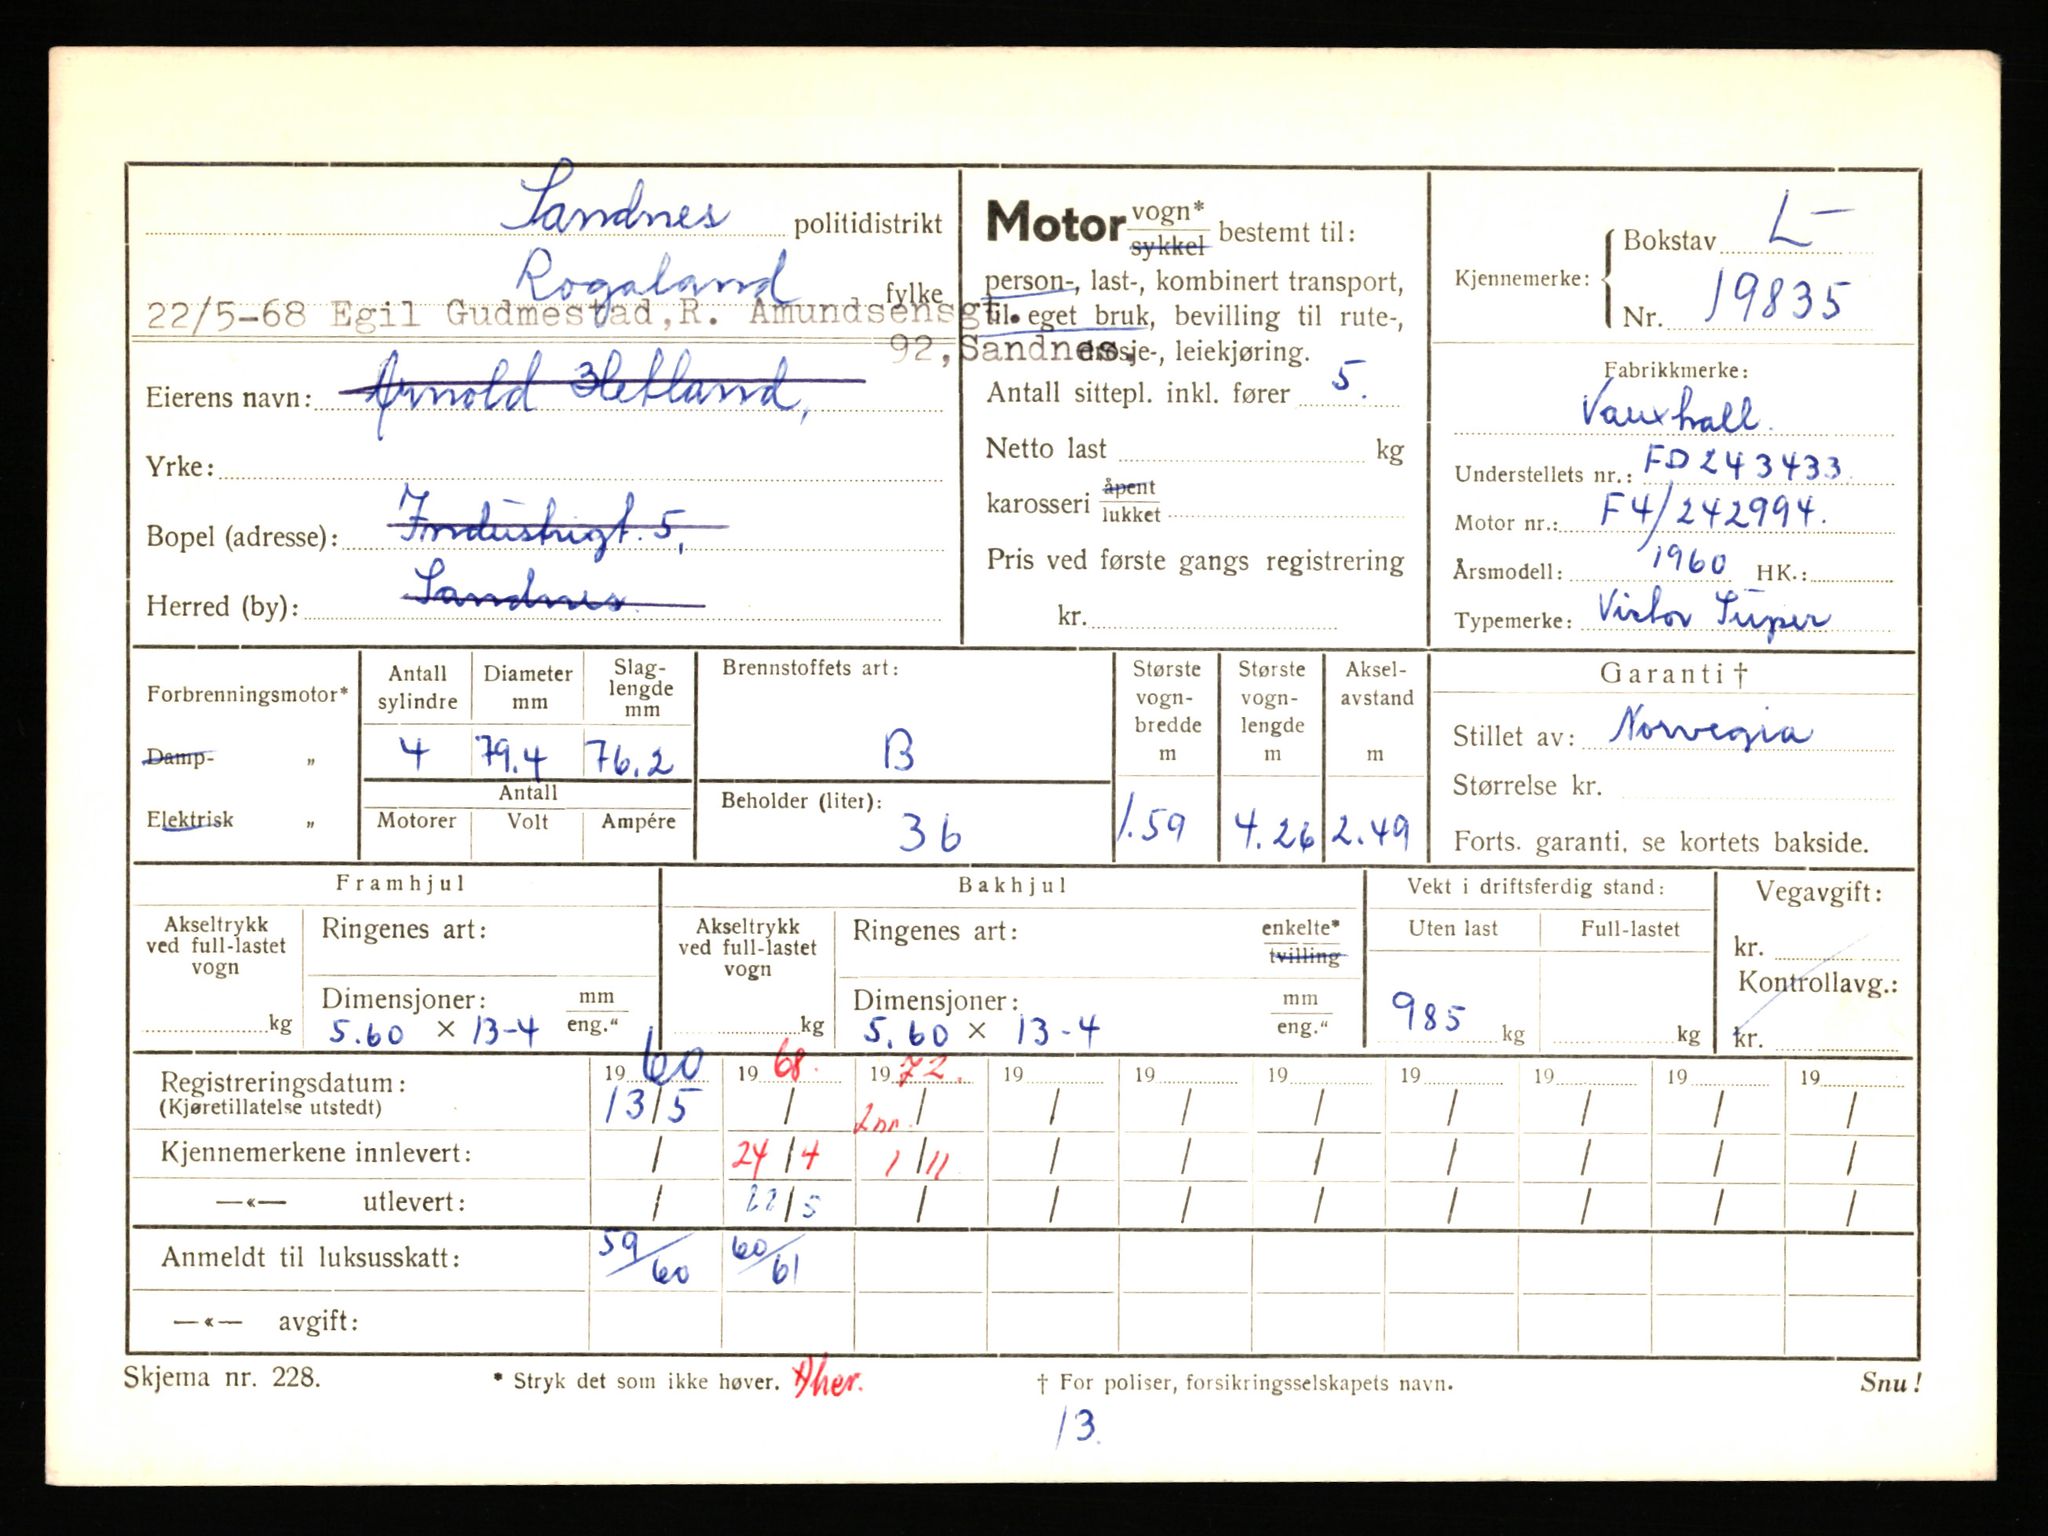 Sandnes politidistrikt
Rogaland fylke
22/5-68 Egil Gudmestad, R. Amundsensgt.
92, Sandnes.
Eierens navn: Arnold Hetland,
Yrke:
Bopel (adresse): Industrigt. 5,
Herred (by): Sandnes
Motor vogn* sykkel bestemt til:
person-, last-, kombinert transport,
til eget bruk, bevilling til rute-,
drosje-, leiekjøring.
Antall sittepl. inkl. fører 5.
Netto last kg
karosseri åpent lukket
Pris ved første gangs registrering
kr.
Kjennemerke: Bokstav L-
Nr. 19835
Fabrikkmerke:
Vauxhall.
Understellets nr.: FD 243433.
Motor nr.: F4/242994.
Årsmodell: 1960 HK.:
Typemerke: Victor Super
Forbrenningsmotor*
Damp- „
Elektrisk „
Antall sylindre
Diameter mm
Slag-lengde mm
4 79.4 76.2
Antall
Motorer Volt Ampére
Brennstoffets art:
B
Beholder (liter):
36
Største vogn-bredde m
1.59
Største vogn-lengde m
4.26
Aksel-avstand m
2.49
Garanti †
Stillet av: Norvegia
Størrelse kr.
Forts. garanti, se kortets bakside.
Framhjul
Akseltrykk
ved full-lastet
vogn
kg
Ringenes art:
Dimensjoner: mm eng."
5.60 × 13-4
Bakhjul
Akseltrykk
ved full-lastet
vogn
kg
Ringenes art: enkelte* tvilling
Dimensjoner: mm eng."
5.60 × 13-4
Vekt i driftsferdig stand:
Uten last Full-lastet
985 kg kg
Vegavgift:
kr.
Kontrollavg.:
kr.
Registreringsdatum: 19 60 19 68. 19 72. 19 19 19 19 19 19 19
(Kjøretillatelse utstedt) 13/5 / 2nr. / / / / / / / /
Kjennemerkene innlevert: / 24/4 1/11 / / / / / / /
—«— utlevert: / 22/5 / / / / / / / /
Anmeldt til luksusskatt: 59/60 60/61
—«— avgift:
Skjema nr. 228. * Stryk det som ikke høver. † For poliser, forsikringsselskapets navn. Snu!
13.